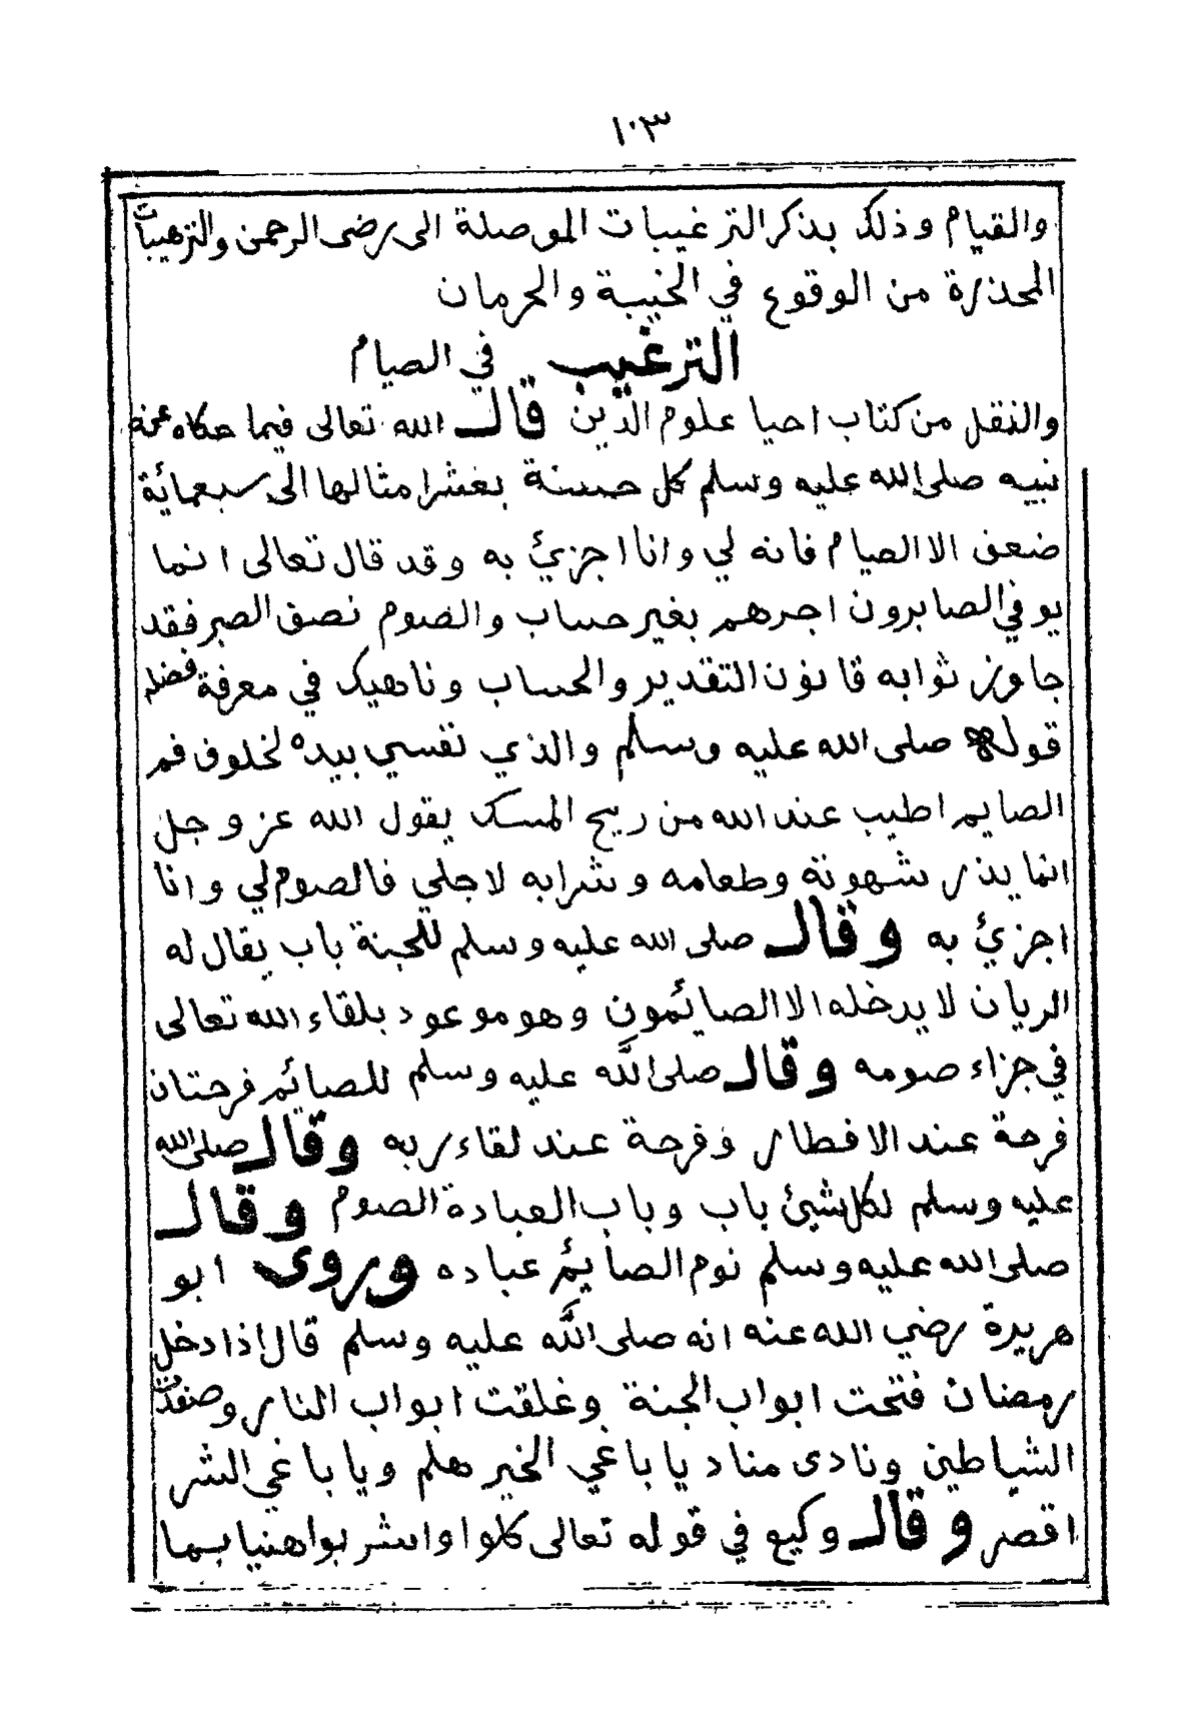 ١٠٣
والقيام وذلك بذكر الترغيبات الموصلة الى رضى الرحمن والترهيبات
المحذرة من الوقوع في الخيبة والحرمان
الترغيب في الصيام
والنقل من كتاب احيا علوم الدين قال الله تعالى فيما حكاه عنه
نبيه صلى الله عليه وسلم كل حسنة بعشر امثالها الى سبعمائة
ضعف الا الصيام فانه لي وانا اجزئ به وقد قال تعالى انما
يوفي الصابرون اجرهم بغير حساب والصوم نصف الصبر فقد
جاوز ثوابه قانون التقدير والحساب وناهيك في معرفة فضله
قوله صلى الله عليه وسلم والذي نفسي بيده لخلوف فم
الصايم اطيب عند الله من ريح المسك يقول الله عز وجل
انما يذر شهوته وطعامه وشرابه لاجلي فالصوم لي وانا
اجزئ به وقال صلى الله عليه وسلم للجنة باب يقال له
الريان لا يدخله الا الصائمون وهو موعود بلقاء الله تعالى
في جزاء صومه وقال صلى الله عليه وسلم للصائم فرحتان
فرحة عند الافطار وفرحة عند لقاء ربه وقال صلى الله
عليه وسلم لكل شئ باب وباب العبادة الصوم وقال
صلى الله عليه وسلم نوم الصايم عباده وروى ابو
هريرة رضي الله عنه انه صلى الله عليه وسلم قال اذا دخل
رمضان فتحت ابواب الجنة وغلقت ابواب النار وصفدت
الشياطين ونادى مناد يا باغي الخير هلم ويا باغي الشر
اقصر وقال وكيع في قوله تعالى كلوا واشربوا هنيا بما